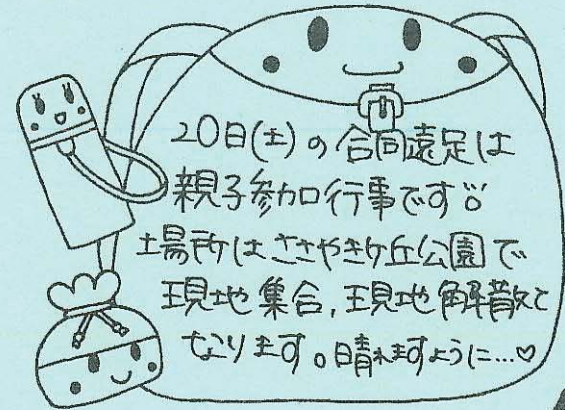 20日(土)の合同遠足は
親子参加行事です
場所はささやきケ丘公園で
現地集合,現地解散と
なります。晴れますように…♡